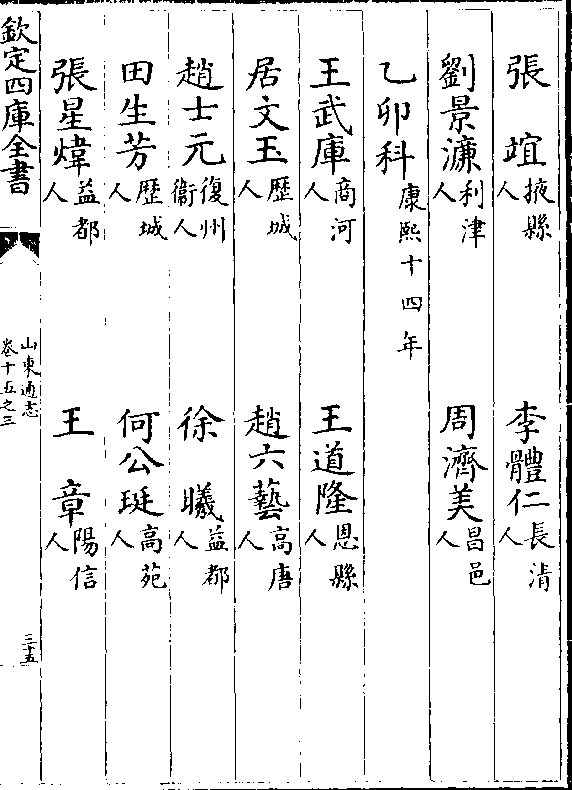 張　誼掖縣人　李體仁長清人
劉景濂利津人　周濟美昌邑人
乙卯科康熙十四年
王武庫商河人　王道隆恩縣人
居文玉歷城人　趙六藝高唐人
趙士元復州衞人　徐　曦益都人
田生芳歷城人　何公珽高苑人
張星煒益都人　王　章陽信人
欽定四庫全書
山東通志
卷十五之三
三十五